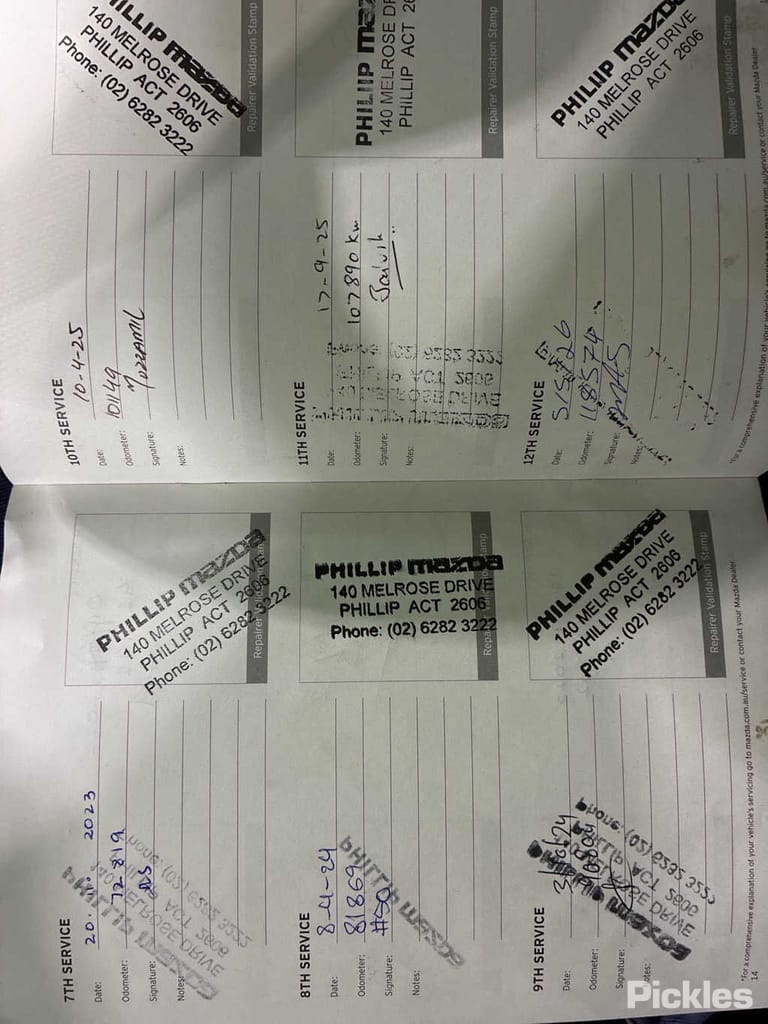 7TH SERVICE
Date: 20. 2023
Odometer: 72819
Signature:
Notes:
PHILLIP mazda
140 MELROSE DRIVE
PHILLIP ACT 2606
Phone: (02) 6282 3222
Repairer Validation Stamp
8TH SERVICE
Date: 8-4-24
Odometer: 81869
Signature:
Notes:
PHILLIP mazda
140 MELROSE DRIVE
PHILLIP ACT 2606
Phone: (02) 6282 3222
Repairer Validation Stamp
9TH SERVICE
Date:
Odometer:
Signature:
Notes:
PHILLIP mazda
140 MELROSE DRIVE
PHILLIP ACT 2606
Phone: (02) 6282 3222
Repairer Validation Stamp
*For a comprehensive explanation of your vehicle's servicing go to mazda.com.au/service or contact your Mazda Dealer.
14
10TH SERVICE
Date: 10-4-25
Odometer: 101149
Signature: MUZZAMIL
Notes:
PHILLIP mazda
140 MELROSE DRIVE
PHILLIP ACT 2606
Phone: (02) 6282 3222
Repairer Validation Stamp
11TH SERVICE
Date: 17-9-25
Odometer: 107890 km
Signature:
Notes:
PHILLIP MAZ
140 MELROSE DRIVE
PHILLIP ACT 26
Repairer Validation Stamp
12TH SERVICE
Date: 5/5/26
Odometer: 118574
Signature:
Notes:
PHILLIP mazda
140 MELROSE DRIVE
PHILLIP ACT 2606
Repairer Validation Stamp
*For a comprehensive explanation of your vehicle's servicing go to mazda.com.au/service or contact your Mazda Dealer.
Pickles